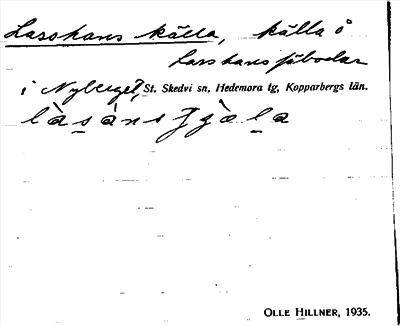 Lasshans källa, källa å
Larshans fäbodar
i Nyberget, St. Skedvi sn, Hedemora tg, Kopparbergs län.
OLLE HILLNER, 1935.